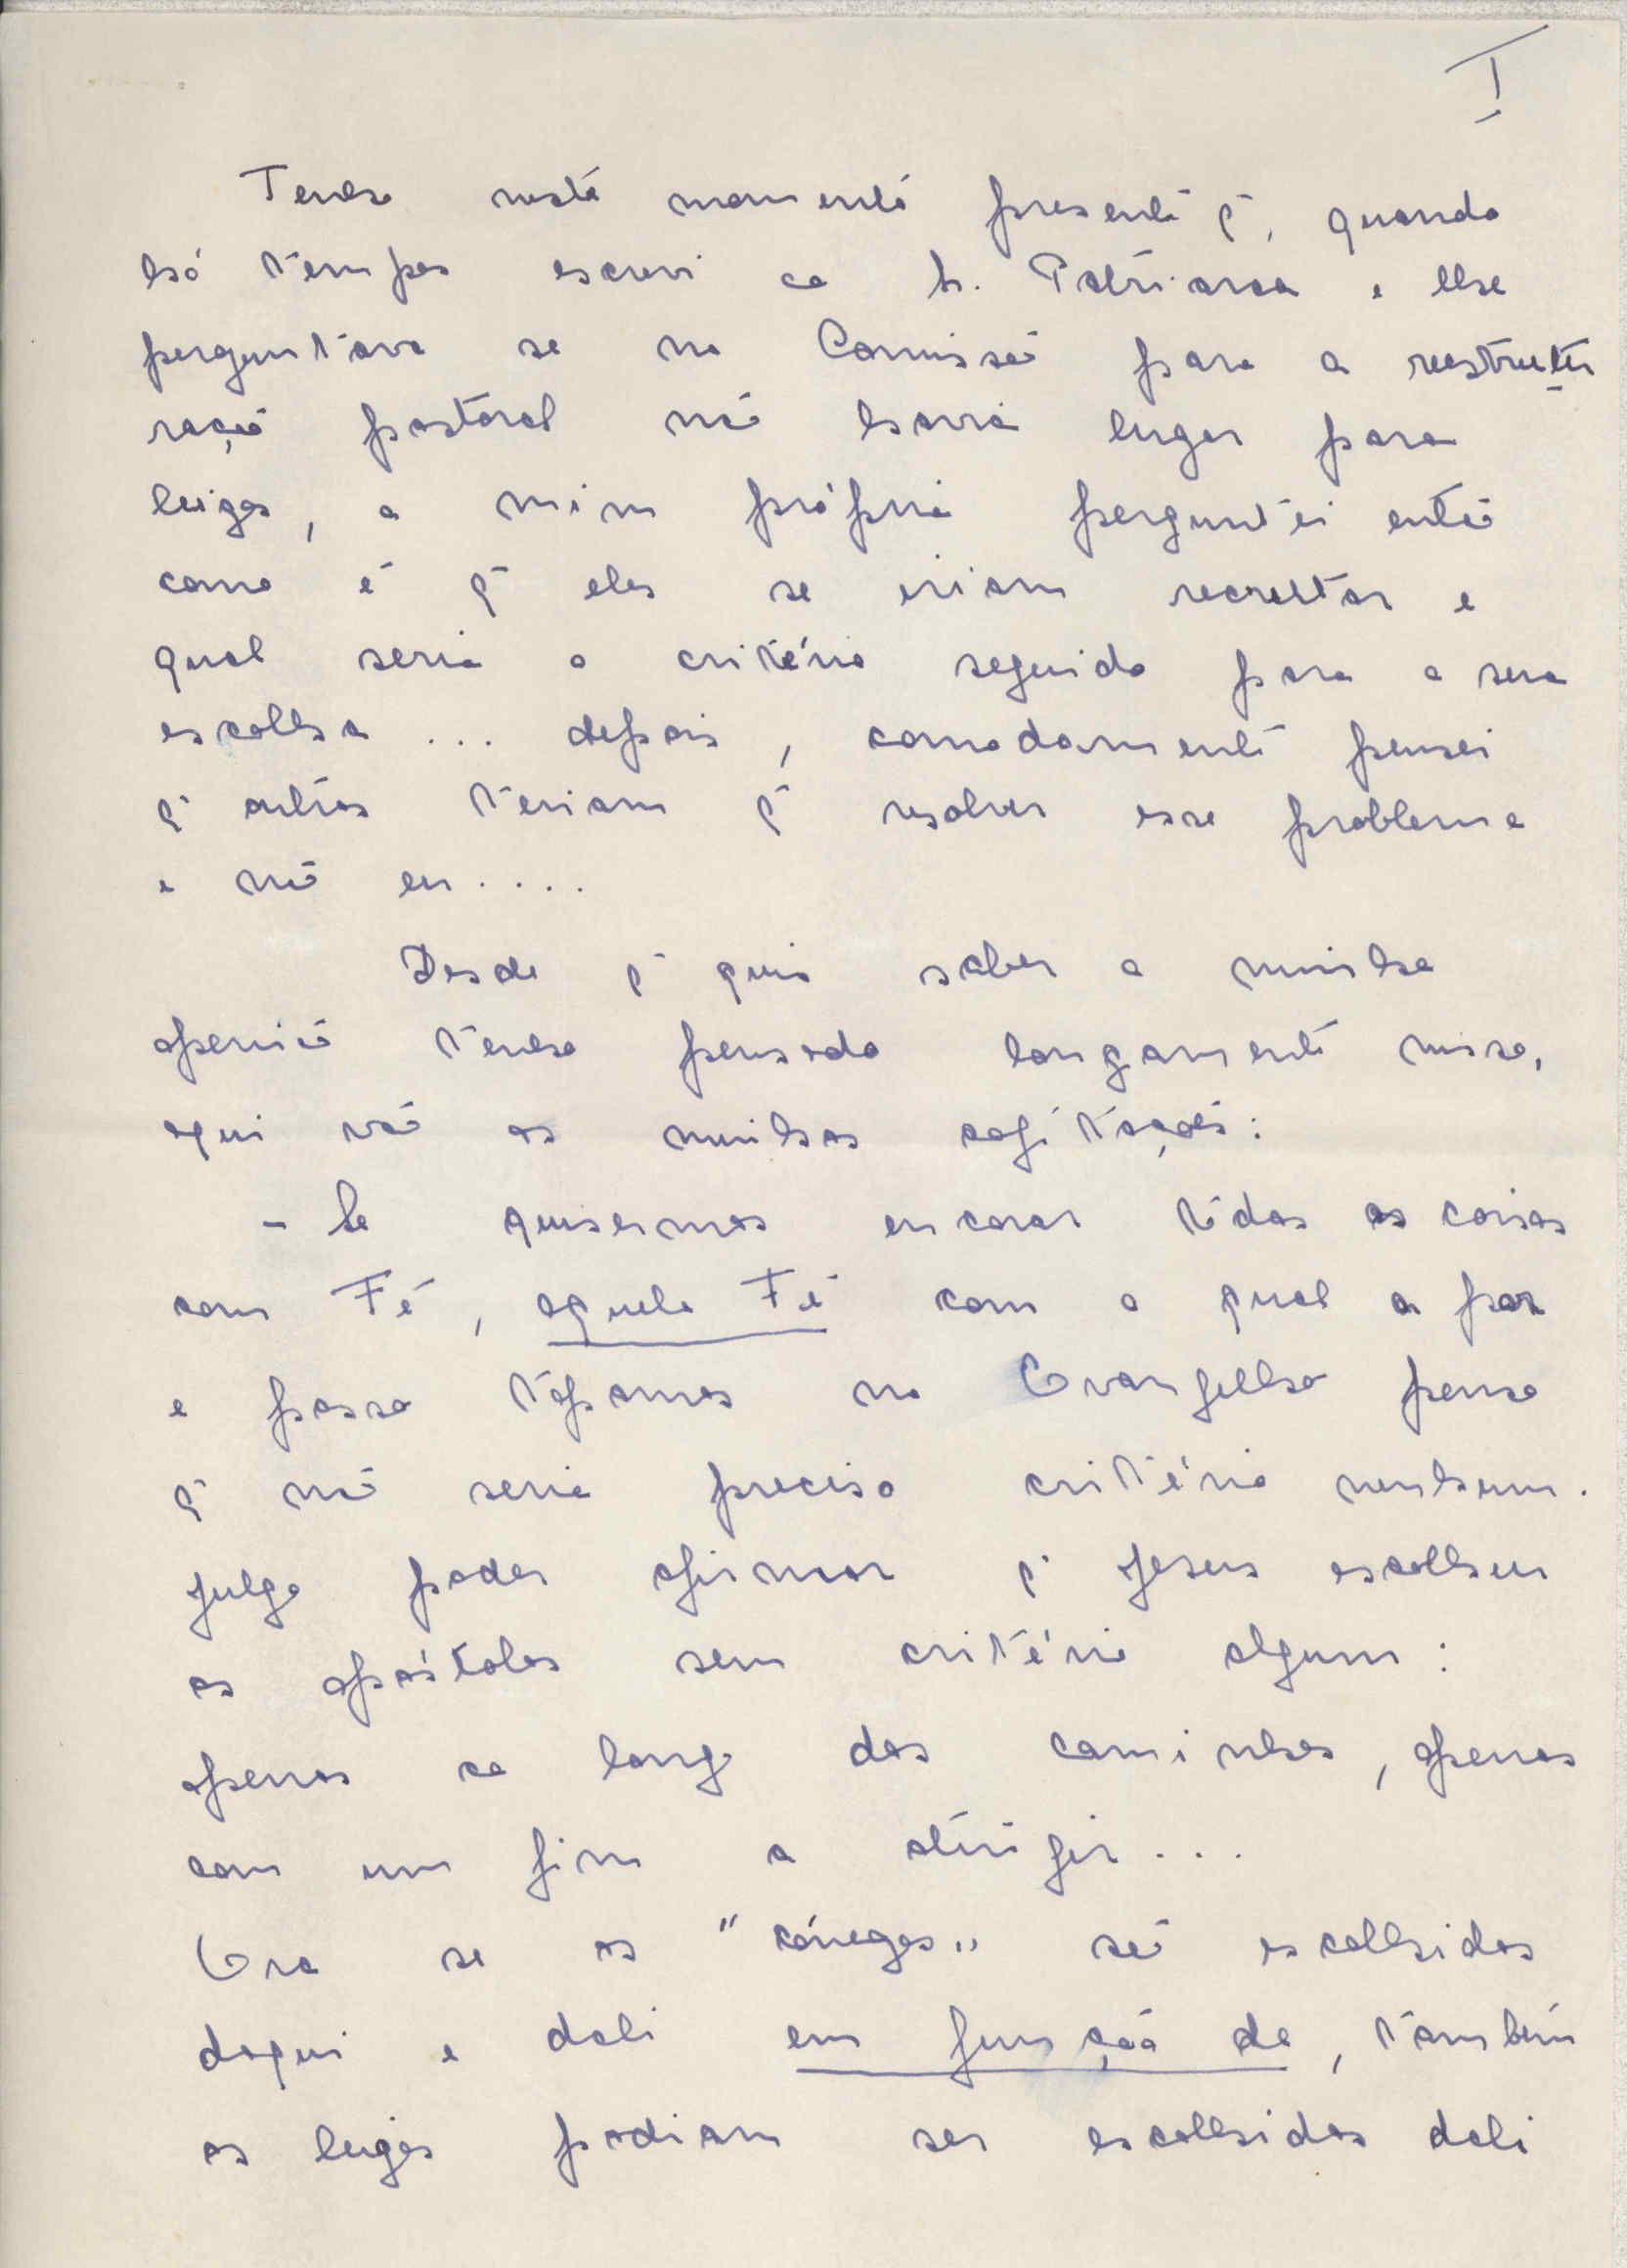 I
Tenho nesta momento presente q̃, quando
há tempos escrevi ao S. Patriarca e lhe
perguntava se na Comissão para a reestrutu
ração pastoral não havia lugar para
leigos, a mim própria perguntei então
como é q̃ eles se iriam recrutar e
qual seria o critério seguido para a sua
escolha ... depois, comodamente pensei
q̃ outros teriam q̃ resolver esse problema
e não eu....
Desde q̃ quis saber a minha
openião tenho pensado longamente nisso,
aqui vão as minhas cogitações:
- Se quisermos encarar todas as coisas
com Fé, aquela Fé com a qual a par
e passo topamos no Evangelho penso
q̃ não seria preciso critério nenhum.
Julgo poder afirmar q̃ Jesus escolheu
os apóstolos sem critério algum:
apenas ao longo dos caminhos, apenas
com um fim a atingir...
Ora se os "cónegos" são escolhidos
daqui e dali em função de, também
os leigos podiam ser escolhidos dali